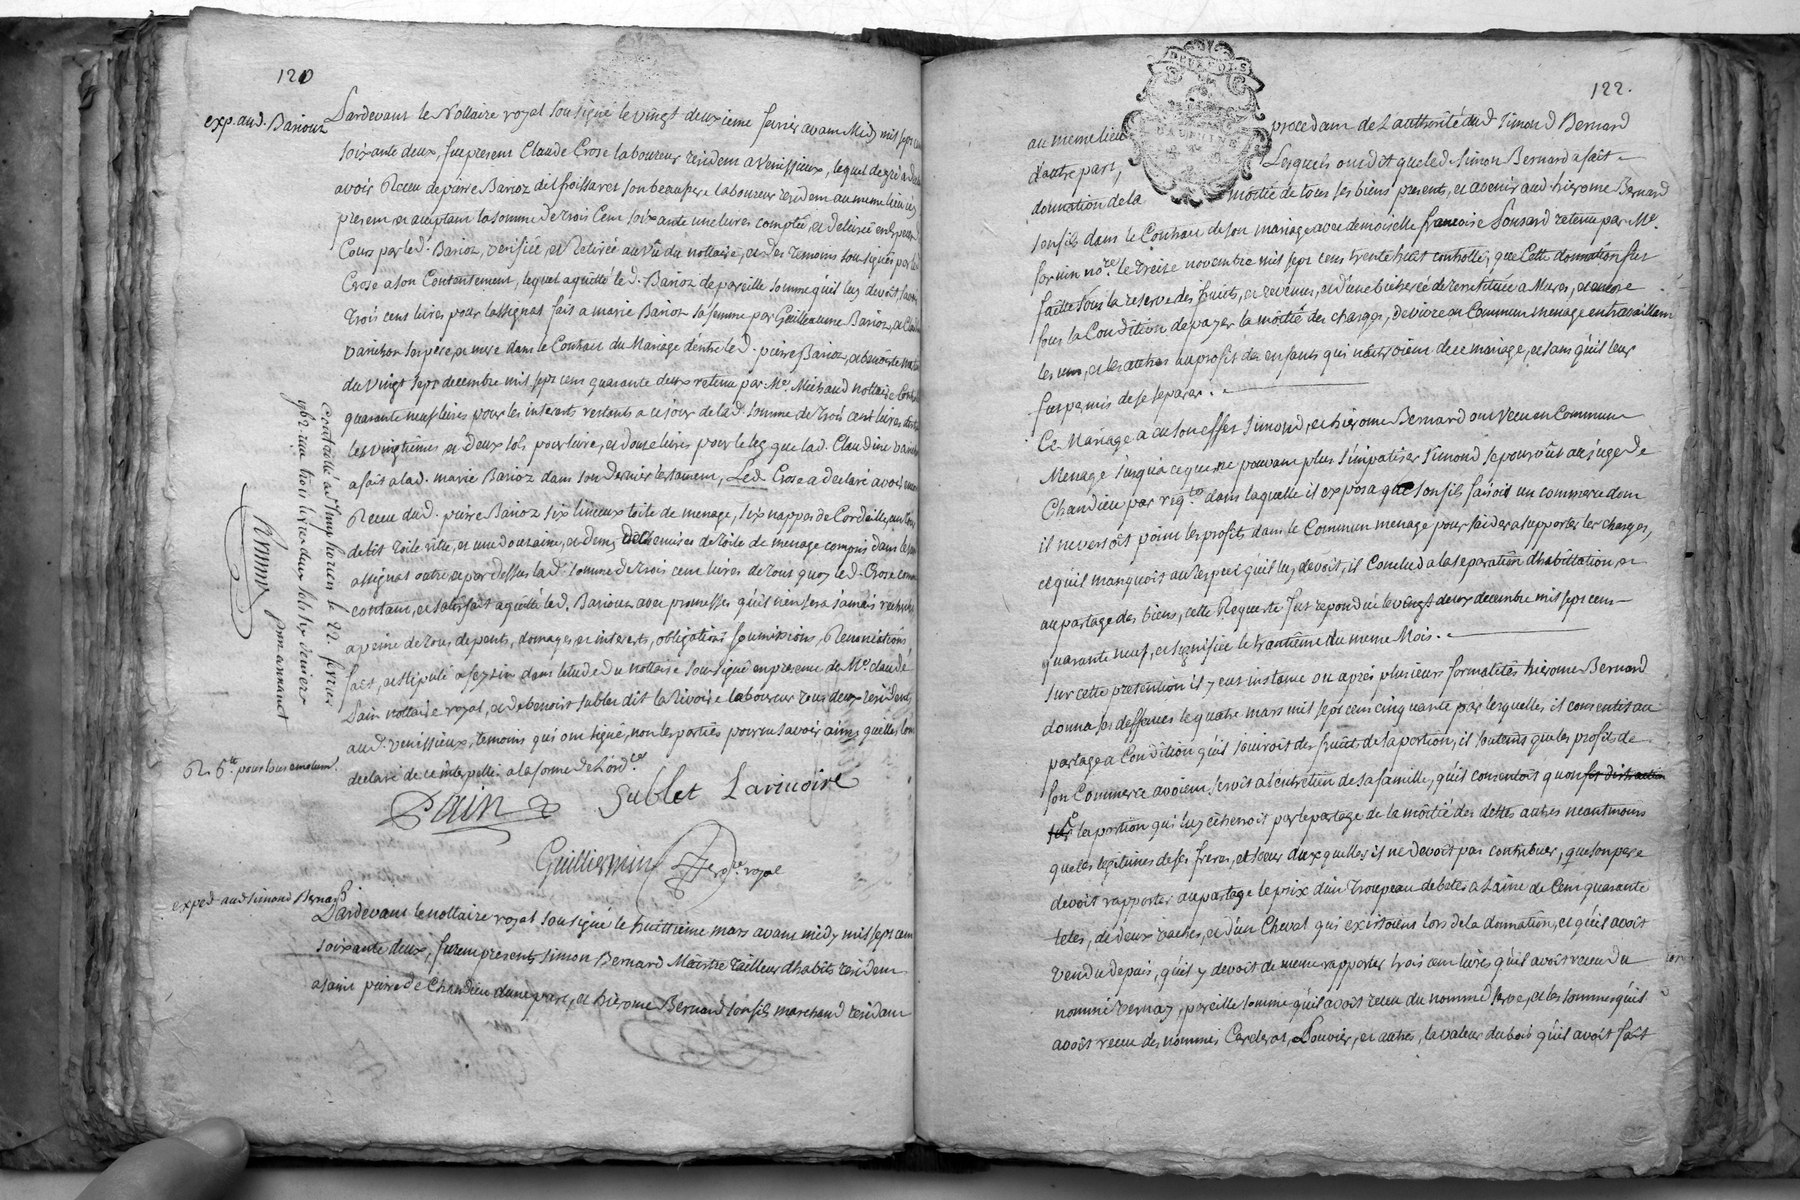 120
exp. aud. Barioz
Pardevant le Nottaire royal soussigné le vingt deuxieme fevrier avant Midy mil sept cen
soixante deux, fut present Claude Crose laboureur resident a Venissieux, lequel de gré a déclaré
avoir Receu de pierre Barioz dit froissaret son beaupere laboureur resident au meme lieu icy
present et aceptant la somme de trois Cent soixante une livres comptée, et delivrée en Especes
Cours par led. Barioz, verifiée, et Retirée au vû du nottaire, et des temoins soussignés par led
Crose a son Contentement, lequel aquitte led. Barioz de pareille somme qu'il luy devoit savoir
trois cent livres pour lassignat fait a marie Barioz sa femme par Guillaume Barioz, et Claudine
Vanchon ses pere, et mere dans le Contract du Mariage d'entre led. pierre Barioz, et benoite
du Vingt sept decembre mil sept cens quarante deux retenu par Me. Michaud nottaire
quarante neuf livres pour les interets restants a ce jour de lad. somme de trois cent livres
les vingtiemes et deux sols pour livre, et douze livres pour le leg que lad. Claudine
a fait a lad. marie Barioz dans son dernier testament, Led. Crose a declaré avoir
Receu dud. pierre Barioz six linceux toile de menage, six nappes de Cordaille, un
de lit toile ritte, et une douzaine, et demy de Chemises de toile de menage compris dans
assignat outre, et par dessus lad. somme de trois cent livres de tout quoy led. Crose
contant, et satisfait aquitte led. Barioz avec promesses qu'il n'en sera jamais
a peine de tous depents, domages, et interets, obligations soumissions, Renonciations
fait, et stipulé a feyzin dans letude du nottaire soussigné en presence de Me. Claude
Pain nottaire royal, et de benoist Sublet dit la Rivoire laboureur tous deux residents
aud. venissieux, temoins qui ont signé, non les parties pour ne savoir ainsi quelles l'ont
declaré de ce interpellé a la forme de l'ord.ce
Pain Sublet Larivoire
Guillermin no.re royal
controllé a St Symphorien le 22. fevrier
1762. reçu trois livres deux sols six deniers
exped. aud. Simond Bernard
Pardevant le nottaire royal soussigné le huittieme mars avant midy mil sept cent
soixante deux, furent presents Simon Bernard Maistre tailleur d'habits resident
a saint pierre de Chandieu dune part, et hierome Bernard son fils marchand resident
122.
au meme lieu procedant de L'authorité dud Simond Bernard
d'autre part, Lesquels ont dit que led. Simon Bernard a fait
donnation de la moitié de tous ses biens presents, et a venir aud. hierome Bernard
son fils dans le Contract de son mariage avec demoiselle francoise Ponsard retenu par Me.
no.re le treise novembre mil sept cens trente huit controllé, que Cette donnation fut
faitte sous la reserve des fruits, et revenus, et d'une bicherée de terre située a Mures, et encore
sous la Condition de payer la moitié des charges, de vivre en Commun menage en travaillant
les uns, et les autres au profit des enfants qui naitroient de ce mariage, et sans qu'il leur
fut permis de se separer.
Ce Mariage a eu son effet Simond, et hierome Bernard ont vecu en Commun
Menage Jusqu'a ce que ne pouvant plus simpatiser Simond se pourvût au juge de
Chandieu par req.te dans laquelle il exposa que son fils faisoit un commerce dont
il ne versoit point les profits dans le Commun menage pour l'aider a supporter les charges,
et qu'il manquoit au respect qu'il luy devoit, il Conclud a la separation d'habittation, et
au partage des biens, cette Requeste fut repondüe le vingt deux decembre mil sept cens
quarante neuf, et signifiée le trantième du meme Mois.
sur cette pretention il y eut instance ou après plusieurs formalités hierome Bernard
donna ses deffences le quatre mars mil sept cens cinquante par lesquelles il consentit au
partage a Condition qu'il jouiroit des fruits de sa portion, il soutendt que les profits de
son Commerce avoient servit a l'entretien de sa famille, qu'il consentoit qu'on fit distraction
sur les portion qui luy écherroit par le partage de la moitié des dettes autres neantmoins
que les legitimes de ses freres, et soeur auxquelles il ne devoit pas contribuer, que son pere
devoit rapporter au partage le prix d'un troupeau de betes a Laine de Cent quarante
tetes, de deux vaches, et d'un Cheval qui existoient lors de la donnation, et qu'il avoit
vendu depuis, qu'il y devoit de meme rapporter trois cent livres qu'il avoit receu du
nommé vernay, pareille somme qu'il avoit receu du nommé serve, et les sommes qu'il
avoit receu des nommés Carderas, Louvier, et autres, la valeur du bois qu'il avoit fait